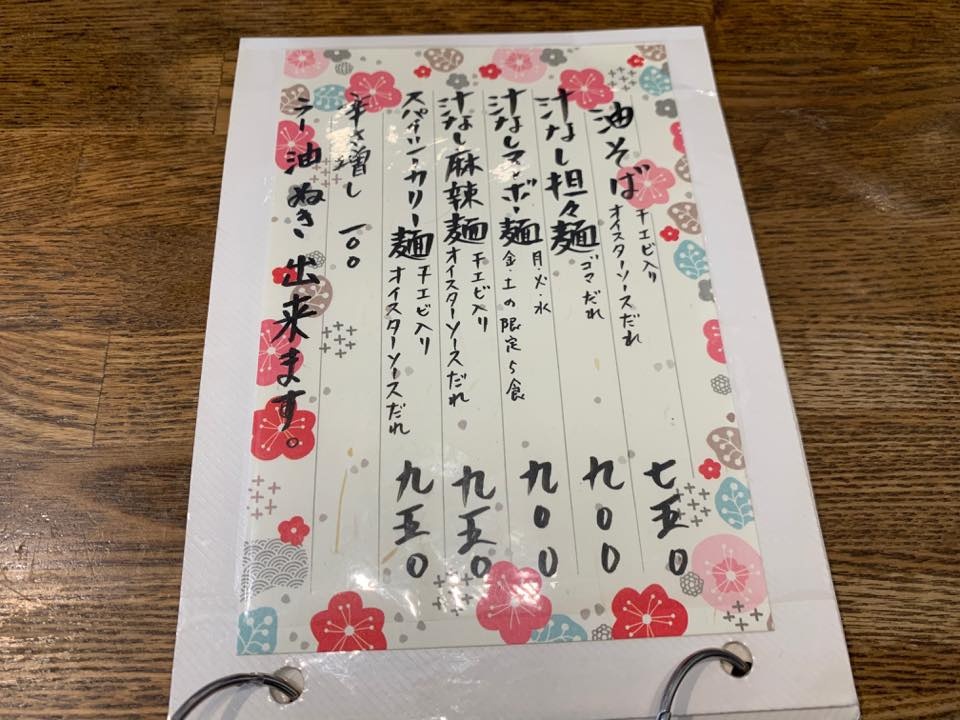 油そば 干エビ入り オイスターソースだれ 七五〇
汁なし担々麺 ゴマだれ 九〇〇
汁なしマーボー麺 月・火・水 金・土の限定5食 九〇〇
汁なし麻辣麺 干エビ入り オイスターソースだれ 九五〇
スパイシーカリー麺 干エビ入り オイスターソースだれ 九五〇
辛さ増し 一〇〇
ラー油ぬき、出来ます。